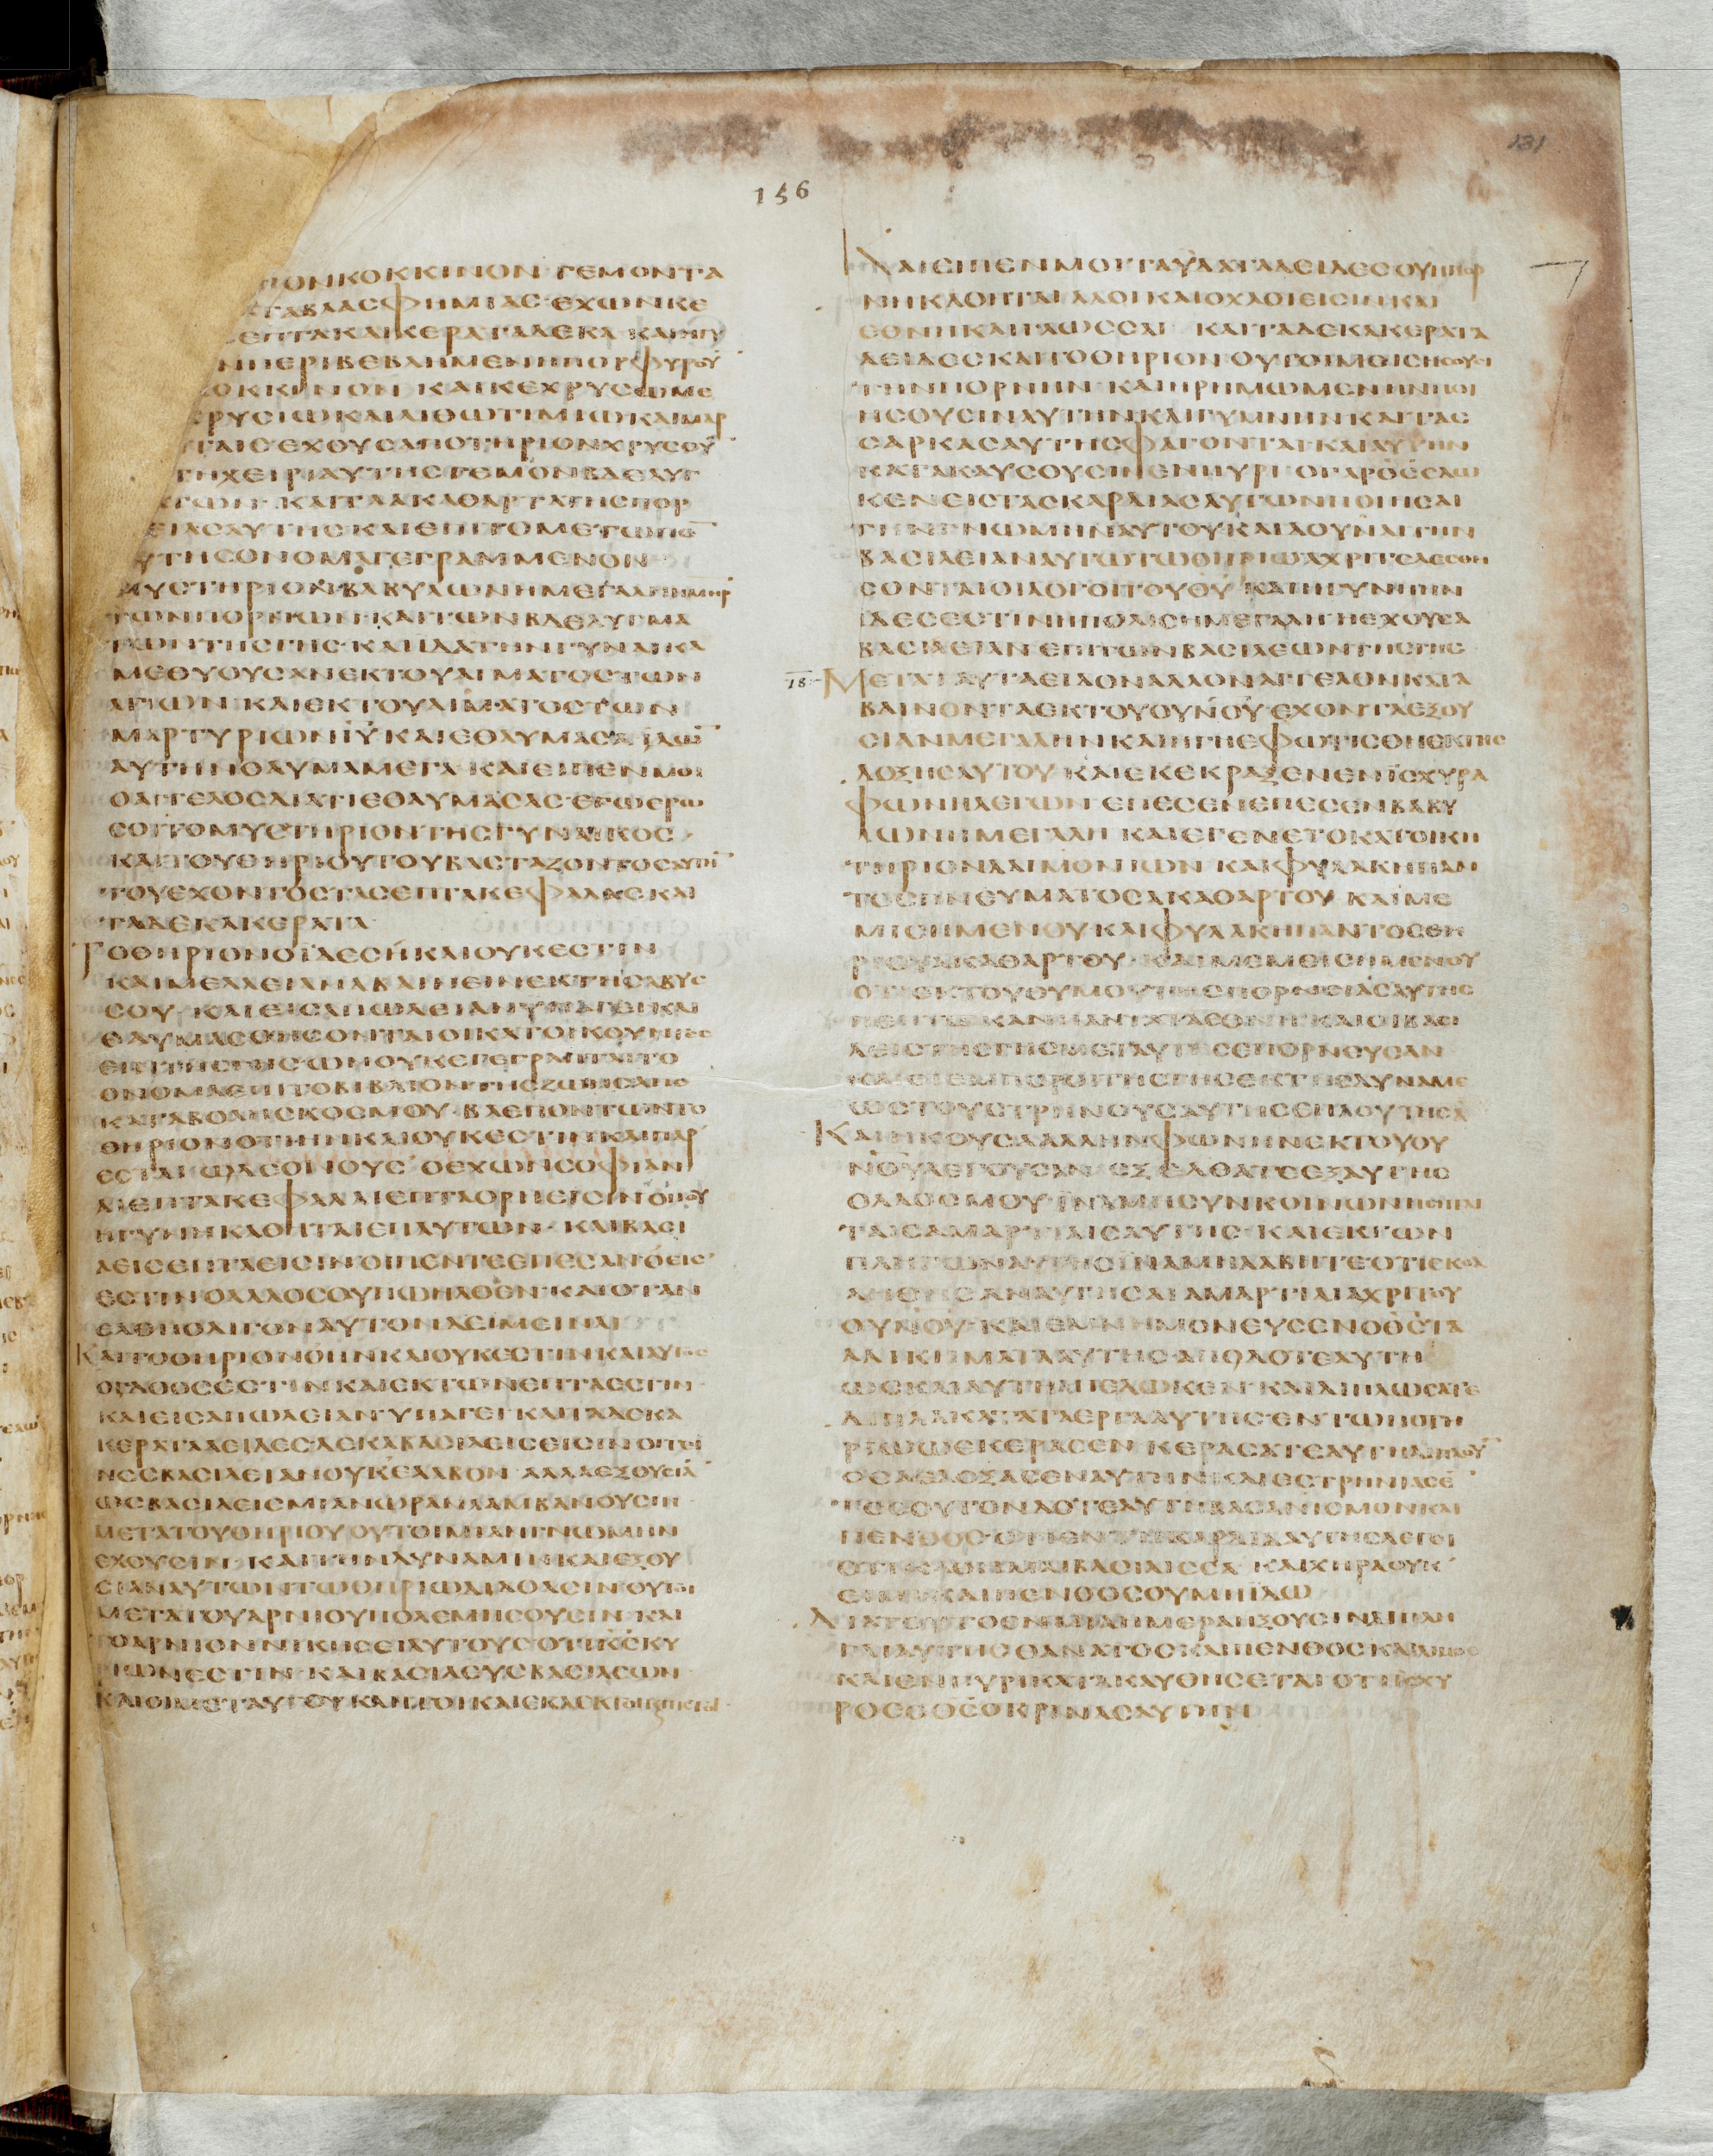 131
156
ΠΙΟΝΚΟΚΚΙΝΟΝ ΓΕΜΟΝΤΑ
ΤΑΒΛΑΣΦΗΜΙΑΣ·ΕΧΩΝΚΕ
ΕΠΤΑΚΑΙΚΕΡΑΤΑΔΕΚΑ ΚΑΙΗΓΥ
ΗΝΠΕΡΙΒΕΒΛΗΜΕΝΗΠΟΡΦΥΡΟΥ̅
ΚΟΚΚΙΝΟΝ ΚΑΙΚΕΧΡΥΣΩΜΕ
ΧΡΥΣΙΩΚΑΙΛΙΘΩΤΙΜΙΩΚΑΙΜΑΡ
ΙΤΑΙΣ ΕΧΟΥΣΑΠΟΤΗΡΙΟΝΧΡΥΣΟΥ̅
ΤΗΧΕΙΡΙΑΥΤΗΣΓΕΜΟΝΒΔΕΛΥΓ
ΑΤΩΝ· ΚΑΙΤΑΑΚΑΘΑΡΤΑΤΗΣΠΟΡ
ΕΙΑΣΑΥΤΗΣ ΚΑΙΕΠΙΤΟΜΕΤΩΠΟ̅
ΥΤΗΣΟΝΟΜΑΓΕΓΡΑΜΜΕΝΟΝ
ΜΥΣΤΗΡΙΟΝ·ΒΑΒΥΛΩΝΗΜΕΓΑΛΗΗΜΗΡ
ΤΩΝΠΟΡΝΩΝ·ΚΑΙΤΩΝΒΔΕΛΥΓΜΑ
ΤΩΝΤΗΣΓΗΣ·ΚΑΙΙΔΑΤΗΝΓΥΝΑΙΚΑ
ΜΕΘΥΟΥΣΑΝΕΚΤΟΥΑΙΜΑΤΟΣΤΩΝ
ΑΓΙΩΝ·ΚΑΙΕΚΤΟΥΑΙΜΑΤΟΣΤΩΝ
ΜΑΡΤΥΡΙΩΝΙ̅Υ̅ ΚΑΙΕΘΑΥΜΑΣΑΪΔΩ̅
ΑΥΤΗΝΘΑΥΜΑΜΕΓΑ·ΚΑΙΕΙΠΕΝΜΟΙ
ΟΑΓΓΕΛΟΣΔΙΑΤΙΕΘΑΥΜΑΣΑΣ·ΕΓΩΕΡΩ
ΣΟΙΤΟΜΥΣΤΗΡΙΟΝΤΗΣΓΥΝΑΙΚΟΣ
ΚΑΙΤΟΥΘΗΡΙΟΥΤΟΥΒΑΣΤΑΖΟΝΤΟΣΑΥΤΗ̅
ΤΟΥΕΧΟΝΤΟΣΤΑΣΕΠΤΑΚΕΦΑΛΑΣΚΑΙ
ΤΑΔΕΚΑΚΕΡΑΤΑ
ΤΟΘΗΡΙΟΝΟΪΔΕΣΗΝΚΑΙΟΥΚΕΣΤΙΝ
ΚΑΙΜΕΛΛΕΙΑΝΑΒΑΙΝΕΙΝΕΚΤΗΣΑΒΥΣ
ΣΟΥ· ΚΑΙΕΙΣΑΠΩΛΕΙΑΝΥΠΑΓΕΙ·ΚΑΙ
ΘΑΥΜΑΣΘΗΣΟΝΤΑΙΟΙΚΑΤΟΙΚΟΥΝΤΕΣ
ΕΠΙΤΗΣΓΗΣ·ΩΝΟΥΚΕΓΕΓΡΑΠΤΑΙΤΟ
ΟΝΟΜΑΕΠΙΤΟΒΙΒΛΙΟΝΤΗΣΖΩΗΣΑΠΟ
ΚΑΤΑΒΟΛΗΣΚΟΣΜΟΥ·ΒΛΕΠΟΝΤΩΝΤΟ
ΘΗΡΙΟΝΟΤΙΗΝΚΑΙΟΥΚΕΣΤΙΝΚΑΙΠΑΡ
ΕΣΤΑΙ ΩΔΕΟΝΟΥΣ ΟΕΧΩΝΣΟΦΙΑΝ
ΑΙΕΠΤΑΚΕΦΑΛΑΙΕΠΤΑΟΡΗΕΙΣΙΝΟΠΟΥ
ΗΓΥΝΗΚΑΘΗΤΑΙΕΠΑΥΤΩΝ· ΚΑΙΒΑΣΙ
ΛΕΙΣΕΠΤΑΕΙΣΙΝ·ΟΙΠΕΝΤΕΕΠΕΣΑΝΟΕΙΣ
ΕΣΤΙΝΟΑΛΛΟΣΟΥΠΩΗΛΘΕΝ·ΚΑΙΟΤΑΝ
ΕΛΘΗΟΛΙΓΟΝΑΥΤΟΝΔΕΙΜΕΙΝΑΙ
ΚΑΙΤΟΘΗΡΙΟΝΟΗΝΚΑΙΟΥΚΕΣΤΙΝΚΑΙΑΥΤΟΣ
ΟΓΔΟΟΣΕΣΤΙΝΚΑΙΕΚΤΩΝΕΠΤΑΕΣΤΙΝ
ΚΑΙΕΙΣΑΠΩΛΕΙΑΝΥΠΑΓΕΙ ΚΑΙΤΑΔΕΚΑ
ΚΕΡΑΤΑΑΕΙΔΕΣΔΕΚΑΒΑΣΙΛΕΙΣΕΙΣΙΝΟΙΤΙ
ΝΕΣΒΑΣΙΛΕΙΑΝΟΥΚΕΛΑΒΟΝ ΑΛΛΑΕΞΟΥΣΙΑ̅
ΩΣΒΑΣΙΛΕΙΣΜΙΑΝΩΡΑΝΛΑΜΒΑΝΟΥΣΙΝ
ΜΕΤΑΤΟΥΘΗΡΙΟΥ ΟΥΤΟΙΜΙΑΝΓΝΩΜΗΝ
ΕΧΟΥΣΙΝ· ΚΑΙΤΗΝΔΥΝΑΜΙΝΚΑΙΕΞΟΥ
ΣΙΑΝΑΥΤΩΝΤΩΘΗΡΙΩΔΙΔΟΑΣΙΝΟΥΤΟΙ
ΜΕΤΑΤΟΥΑΡΝΙΟΥΠΟΛΕΜΗΣΟΥΣΙΝ·ΚΑΙ
ΤΟΑΡΝΙΟΝΝΙΚΗΣΕΙΑΥΤΟΥΣΟΤΙΚ̅Σ̅ΚΥ
ΡΙΩΝΕΣΤΙΝ·ΚΑΙΒΑΣΙΛΕΥΣΒΑΣΙΛΕΩΝ
ΚΑΙΟΙΜΕΤΑΥΤΟΥΚΛΗΤΟΙΚΑΙΕΚΛΕΚΤΟΙΚΠΙΣΤΟΙ
ΚΑΙΕΙΠΕΝΜΟΙΤΑΥΔΑΤΑΑΕΙΔΕΣΟΥΗΠΟΡ
ΝΗΚΑΘΗΤΑΙ ΛΑΟΙΚΑΙΟΧΛΟΙΕΙΣΙΝΚΑΙ
ΕΘΝΗΚΑΙΓΛΩΣΣΑΙ ΚΑΙΤΑΔΕΚΑΚΕΡΑΤΑ
ΑΕΙΔΕΣΚΑΙΤΟΘΗΡΙΟΝΟΥΤΟΙΜΕΙΣΗΣΟΥΣΙ
ΤΗΝΠΟΡΝΗΝ·ΚΑΙΗΡΗΜΩΜΕΝΗΝΠΟΙ
ΗΣΟΥΣΙΝΑΥΤΗΝΚΑΙΓΥΜΝΗΝΚΑΙΤΑΣ
ΣΑΡΚΑΣΑΥΤΗΣΦΑΓΟΝΤΑΙ·ΚΑΙΑΥΤΗΝ
ΚΑΤΑΚΑΥΣΟΥΣΙΝΕΝΠΥΡΙ ΟΓΑΡΘ̅Σ̅ΕΔΩ
ΚΕΝΕΙΣΤΑΣΚΑΡΔΙΑΣΑΥΤΩΝΠΟΙΗΣΑΙ
ΤΗΝΓΝΩΜΗΝΑΥΤΟΥΚΑΙΔΟΥΝΑΙΤΗΝ
ΒΑΣΙΛΕΙΑΝΑΥΤΩΤΩΘΗΡΙΩΑΧΡΙΤΕΛΕΣΘΗ
ΣΟΝΤΑΙΟΙΛΟΓΟΙΤΟΥΘ̅Υ̅ ΚΑΙΗΓΥΝΗΗΝ
ΙΔΕΣΕΣΤΙΝΗΠΟΛΙΣΗΜΕΓΑΛΗΗΕΧΟΥΣΑ
ΒΑΣΙΛΕΙΑΝ ΕΠΙΤΩΝΒΑΣΙΛΕΩΝΤΗΣΓΗΣ
18:- ΜΕΤΑΤΑΥΤΑΕΙΔΟΝΑΛΛΟΝΑΓΓΕΛΟΝΚΑΤΑ
ΒΑΙΝΟΝΤΑΕΚΤΟΥΟΥΝ̅Ο̅Υ̅·ΕΧΟΝΤΑΕΞΟΥ
ΣΙΑΝΜΕΓΑΛΗΝΚΑΙΗΓΗΕΦΩΤΙΣΘΗΕΚΤΗΣ
ΔΟΞΗΣΑΥΤΟΥ·ΚΑΙΕΚΕΚΡΑΞΕΝΕΝΪΣΧΥΡΑ
ΦΩΝΗΛΕΓΩΝ·ΕΠΕΣΕΝΕΠΕΣΕΝΒΑΒΥ
ΛΩΝΗΜΕΓΑΛΗ ΚΑΙΕΓΕΝΕΤΟΚΑΤΟΙΚΗ
ΤΗΡΙΟΝΔΑΙΜΟΝΙΩΝ ΚΑΙΦΥΛΑΚΗΠΑΝ
ΤΟΣΠΝΕΥΜΑΤΟΣΑΚΑΘΑΡΤΟΥ ΚΑΙΜΕ
ΜΙΣΗΜΕΝΟΥ·ΚΑΙΦΥΛΑΚΗΠΑΝΤΟΣΘΗ
ΡΙΟΥΑΚΑΘΑΡΤΟΥ·ΚΑΙΜΕΜΕΙΣΗΜΕΝΟΥ
ΟΤΙΕΚΤΟΥΘΥΜΟΥΤΗΣΠΟΡΝΕΙΑΣΑΥΤΗΣ
ΛΕΙΣΤΗΣΓΗΣΜΕΤΑΥΤΗΣΕΠΟΡΝΕΥΣΑΝ
ΚΑΙΟΙΕΜΠΟΡΟΙΤΗΣΓΗΣΕΚΤΗΣΔΥΝΑΜΕ
ΩΣΤΟΥΣΤΡΗΝΟΥΣΑΥΤΗΣΕΠΛΟΥΤΗΣΑ̅
ΚΑΙΗΚΟΥΣΑΑΛΛΗΝΦΩΝΗΝΕΚΤΟΥΟΥ
Ν̅Ο̅Υ̅ΛΕΓΟΥΣΑΝ ΕΞΕΛΘΑΤΕΕΞΑΥΤΗΣ
ΟΛΑΟΣΜΟΥ·ΪΝΑΜΗΣΥΝΚΟΙΝΩΝΗΣΗΤΑΙ
ΤΑΙΣΑΜΑΡΤΙΑΙΣΑΥΤΗΣ·ΚΑΙΕΚΤΩΝ
ΠΛΗΓΩΝΑΥΤΗΣΪΝΑΜΗΛΑΒΗΤΕΟΤΙΕΚΟΛ
ΛΗΘΗΣΑΝΑΥΤΗΣΑΙΑΜΑΡΤΙΑΙΑΧΡΙΤΟΥ
ΟΥΝ̅Ο̅Υ̅·ΚΑΙΕΜΝΗΜΟΝΕΥΣΕΝΟΘ̅Σ̅ΤΑ
ΑΔΙΚΗΜΑΤΑΑΥΤΗΣ·ΑΠΟΔΟΤΕΑΥΤΗ
ΩΣΚΑΙΑΥΤΗΑΠΕΔΩΚΕΝ·ΚΑΙΔΙΠΛΩΣΑΤΕ
ΔΙΠΛΑΚΑΤΑΤΑΕΡΓΑΑΥΤΗΣ·ΕΝΤΩΠΟΤΗ
ΡΙΩΩΕΚΕΡΑΣΕΝ ΚΕΡΑΣΑΤΕΑΥΤΗΔΙΠΛΟΥ̅
ΟΣΑΕΔΟΞΑΣΕΝΑΥΤΗΝ·ΚΑΙΕΣΤΡΗΝΙΑΣΕ̅
ΤΟΣΟΥΤΟΝΔΟΤΕΑΥΤΗΒΑΣΑΝΙΣΜΟΝΚΑΙ
ΠΕΝΘΟΣ·ΟΤΙΕΝΤΗΚΑΡΔΙΑΑΥΤΗΣΛΕΓΕΙ
ΟΤΙΚΑΘΗΜΑΙΒΑΣΙΛΙΣΣΑ ΚΑΙΧΗΡΑΟΥΚ
ΕΙΜΙ·ΚΑΙΠΕΝΘΟΣΟΥΜΗΪΔΩ
ΔΙΑΤΟΥΤΟΕΝΜΙΑΗΜΕΡΑΗΞΟΥΣΙΝΑΙΠΛΗ
ΓΑΙΑΥΤΗΣΘΑΝΑΤΟΣΚΑΙΠΕΝΘΟΣΚΑΙΛΙΜΟΣ
ΚΑΙΕΝΠΥΡΙΚΑΤΑΚΑΥΘΗΣΕΤΑΙΟΤΙΪΣΧΥ
ΡΟΣΟΘ̅Σ̅ΟΚΡΙΝΑΣΑΥΤΗΝ